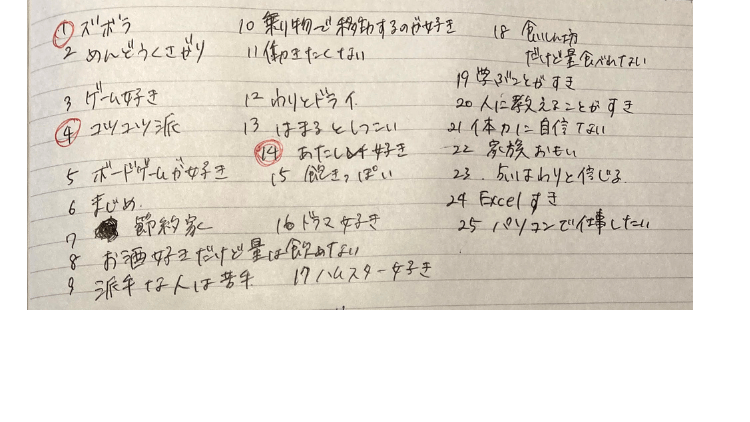 1 ズボラ
2 めんどうくさがり
3 ゲーム好き
4 コツコツ派
5 ボードゲームが好き
6 まじめ.
7 節約家
8 お酒好きだけど量は飲めない
9 派手な人は苦手
10 乗り物で移動するのが好き
11 働きたくない
12 わりとドライ
13 はまるとしつこい
14 あたらし 好き
15 飽きっぽい
16 ドラマ好き
17 ハムスター好き
18 食いしん坊
だけど量食べれない
19 学ぶことがすき
20 人に教えることがすき
21 体力に自信ない
22 家族おもい
23. 占いはわりと信じる.
24 Excelすき
25 パソコンで仕事したい